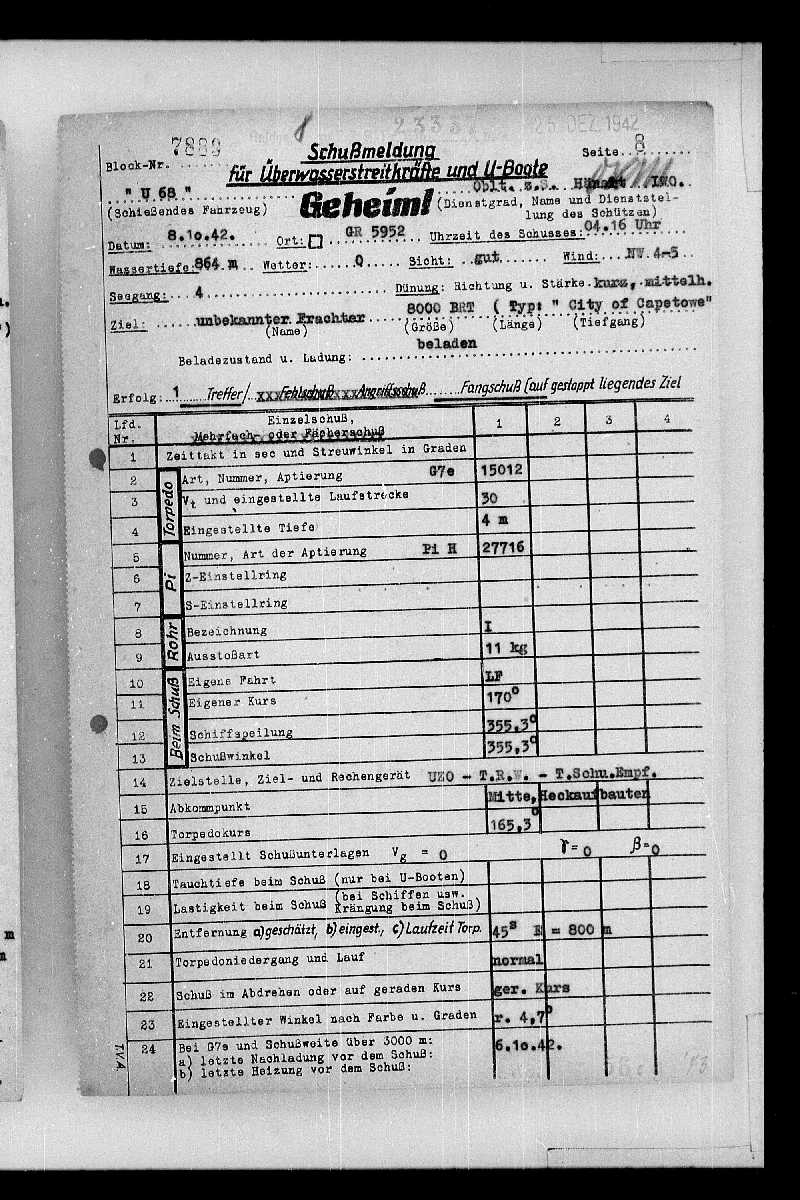 25 DEZ. 1942
Block-Nr. 7889
Schußmeldung
Seite 8
für Überwasserstreitkräfte und U-Boote
" U 68 "
Geheim!
Oblt. z.S. IWO.
(Schießendes Fahrzeug)
(Dienstgrad, Name und Dienststel-
lung des Schützen)
Datum: 8.10.42. Ort: GR 5952 Uhrzeit des Schusses: 04.16 Uhr
Wassertiefe: 864 m Wetter: 0 Sicht: gut Wind: NW. 4-5
Seegang: 4 Dünung: Richtung u. Stärke kurz, mittelh.
Ziel: unbekannter Frachter 8000 BRT ( Typ: " City of Capetowe"
(Name) (Größe) (Länge) (Tiefgang)
beladen
Beladezustand u. Ladung:
Erfolg: 1 Treffer/ xxxFehlschuß xxxAngriffsschuß Fangschuß (auf gestoppt liegendes Ziel
Lfd. Nr. Einzelschuß, 1 2 3 4
Mehrfach- oder Fächerschuß
1 Zeittakt in sec und Streuwinkel in Graden
Torpedo
2 Art, Nummer, Aptierung G7e 15012
3 Vt und eingestellte Laufstrecke 30
4 Eingestellte Tiefe 4 m
Pi
5 Nummer, Art der Aptierung Pi H 27716
6 Z-Einstellring
7 S-Einstellring
Rohr
8 Bezeichnung I
9 Ausstoßart 11 kg
Beim Schuß
10 Eigene Fahrt LF
11 Eigener Kurs 170°
12 Schiffspeilung 355,3°
13 Schußwinkel 355,3°
14 Zielstelle, Ziel- und Rechengerät UZO - T.R.W. - T.Schu.Empf.
15 Abkommpunkt Mitte, Heckaufbauten
16 Torpedokurs 165,3°
17 Eingestellt Schußunterlagen Vg = 0 γ=0 β=0
18 Tauchtiefe beim Schuß (nur bei U-Booten)
19 Lastigkeit beim Schuß (bei Schiffen usw.
Krängung beim Schuß)
20 Entfernung a)geschätzt, b) eingest., c) Laufzeit Torp. 45s E = 800 m
21 Torpedoniedergang und Lauf normal
22 Schuß im Abdrehen oder auf geraden Kurs ger. Kurs
23 Eingestellter Winkel nach Farbe u. Graden r. 4,7°
24 Bei G7e und Schußweite über 3000 m: 6.10.42.
a) letzte Nachladung vor dem Schuß:
b) letzte Heizung vor dem Schuß:
TVA